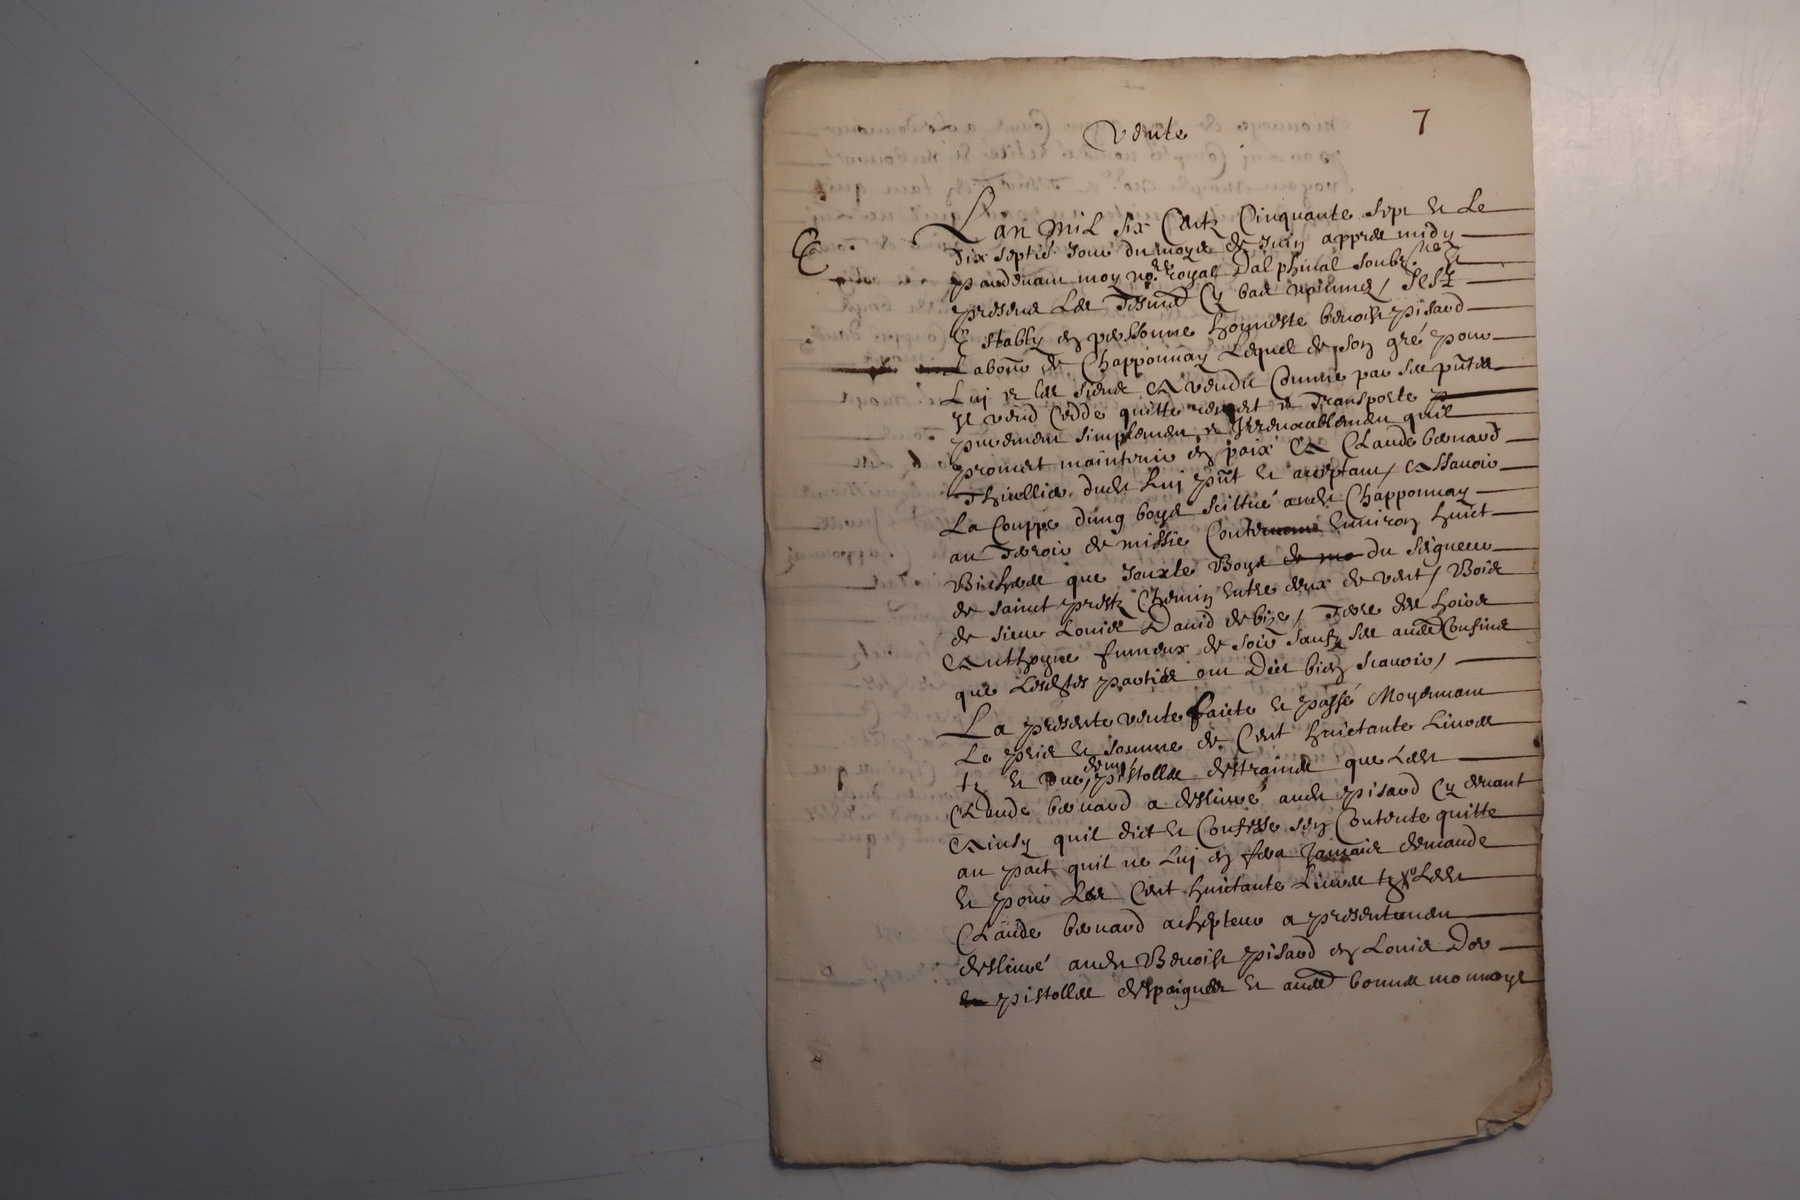 7
Vente
Lan mil six Centz Cinquante sept et Le
dix septie. Jour du moys de Juin appres midy
pardevant moy no.re Royal Dalphinal soubz.né et
presens Les Tesmoings Cy bas nommez / sest
Estably en personne honneste benoist pisard
Labour de Chapponnay Lequel de son gré pour
Luy et les siens A vendu Comme par ses pntes
Il vend Cedde quitte remet et Transporte
purement simplement et Irrevocablement quil
promet maintenir en paix A Claude bernard
dudit Lui pnt et acceptant / Assavoir
La Couppe dung boys scittué audit Chapponnay
au Terroir de missie Contenant Environ huict
Bicherees que Jouxte Boys de mo du seigneur
de sainct priest Chemin entre deux de vent / Bois
de sieur Louis David de bize / Terre des hoirs
Anthoyne fumeux de soir sauf ses aues Confins
que Lesdites parties ont Dict bien scavoir /
La presente vente faicte et passé Moyennant
Le pris et somme de Cent huictante Livres
tz et une demy pistolle destraines que Ledit
Claude bernard a deslivré audit pisard Cy devant
Ainsy quil dict et Confesse sen Contente quitte
au pact quil ne Lui en fera Jamais demande
Et pour Les Cent huictante Livres tz Ledit
Claude bernard achepteur a presentement
deslivré audit Benoist pisard en Louis Dor
et pistolles despaignes et aues bonnes monnoye